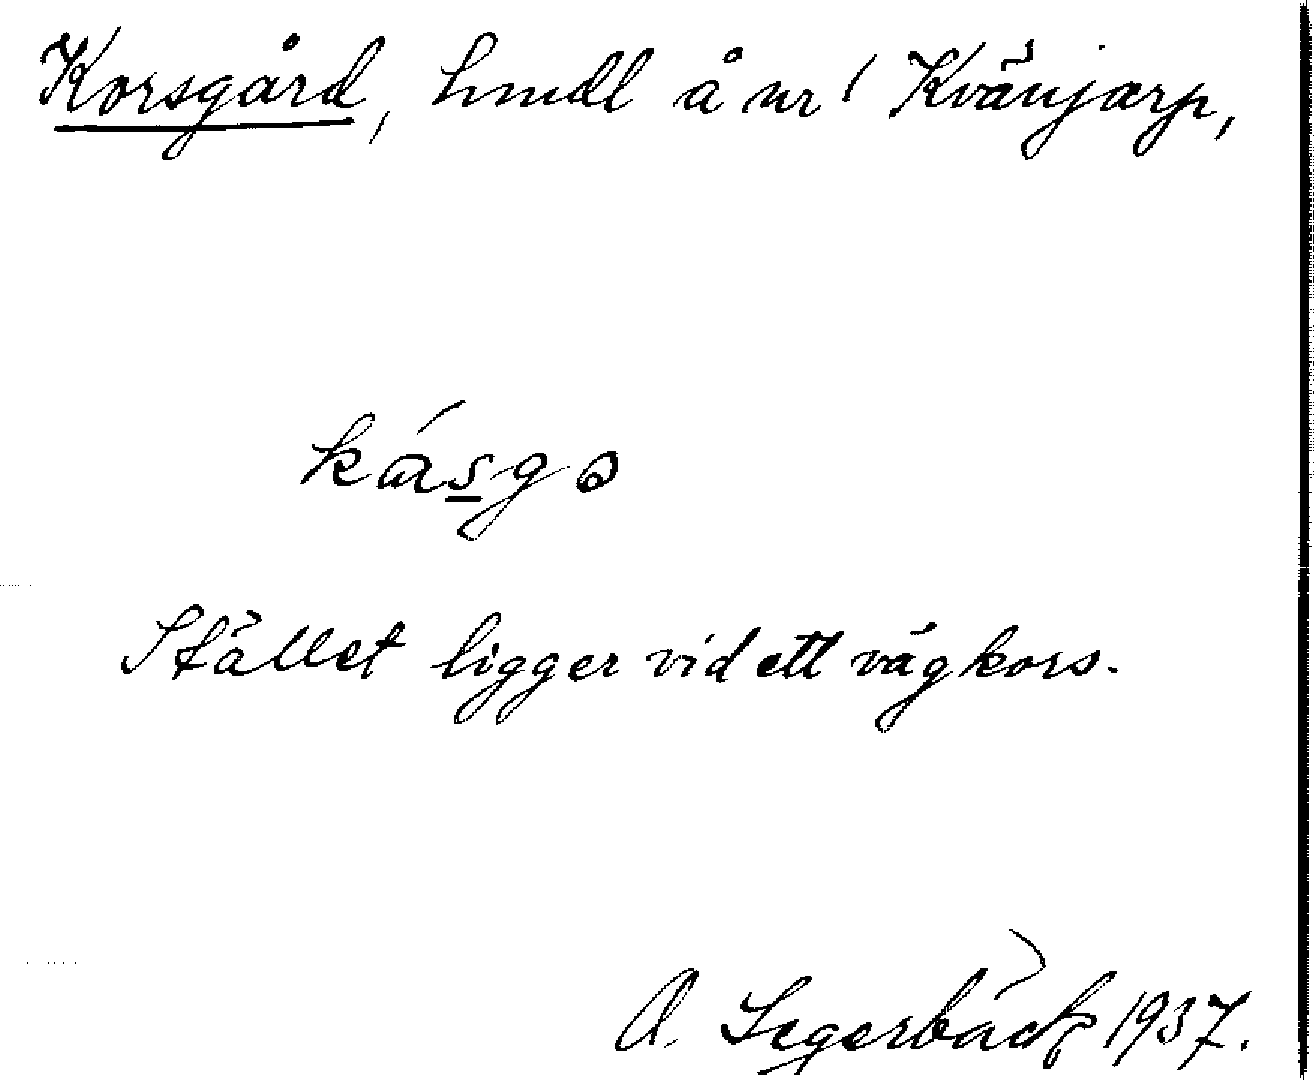 Korsgård, hmdl å nr 1 Kvänjarp,
Stället ligger vid ett vägkors.
A. Segerbäck 1937.